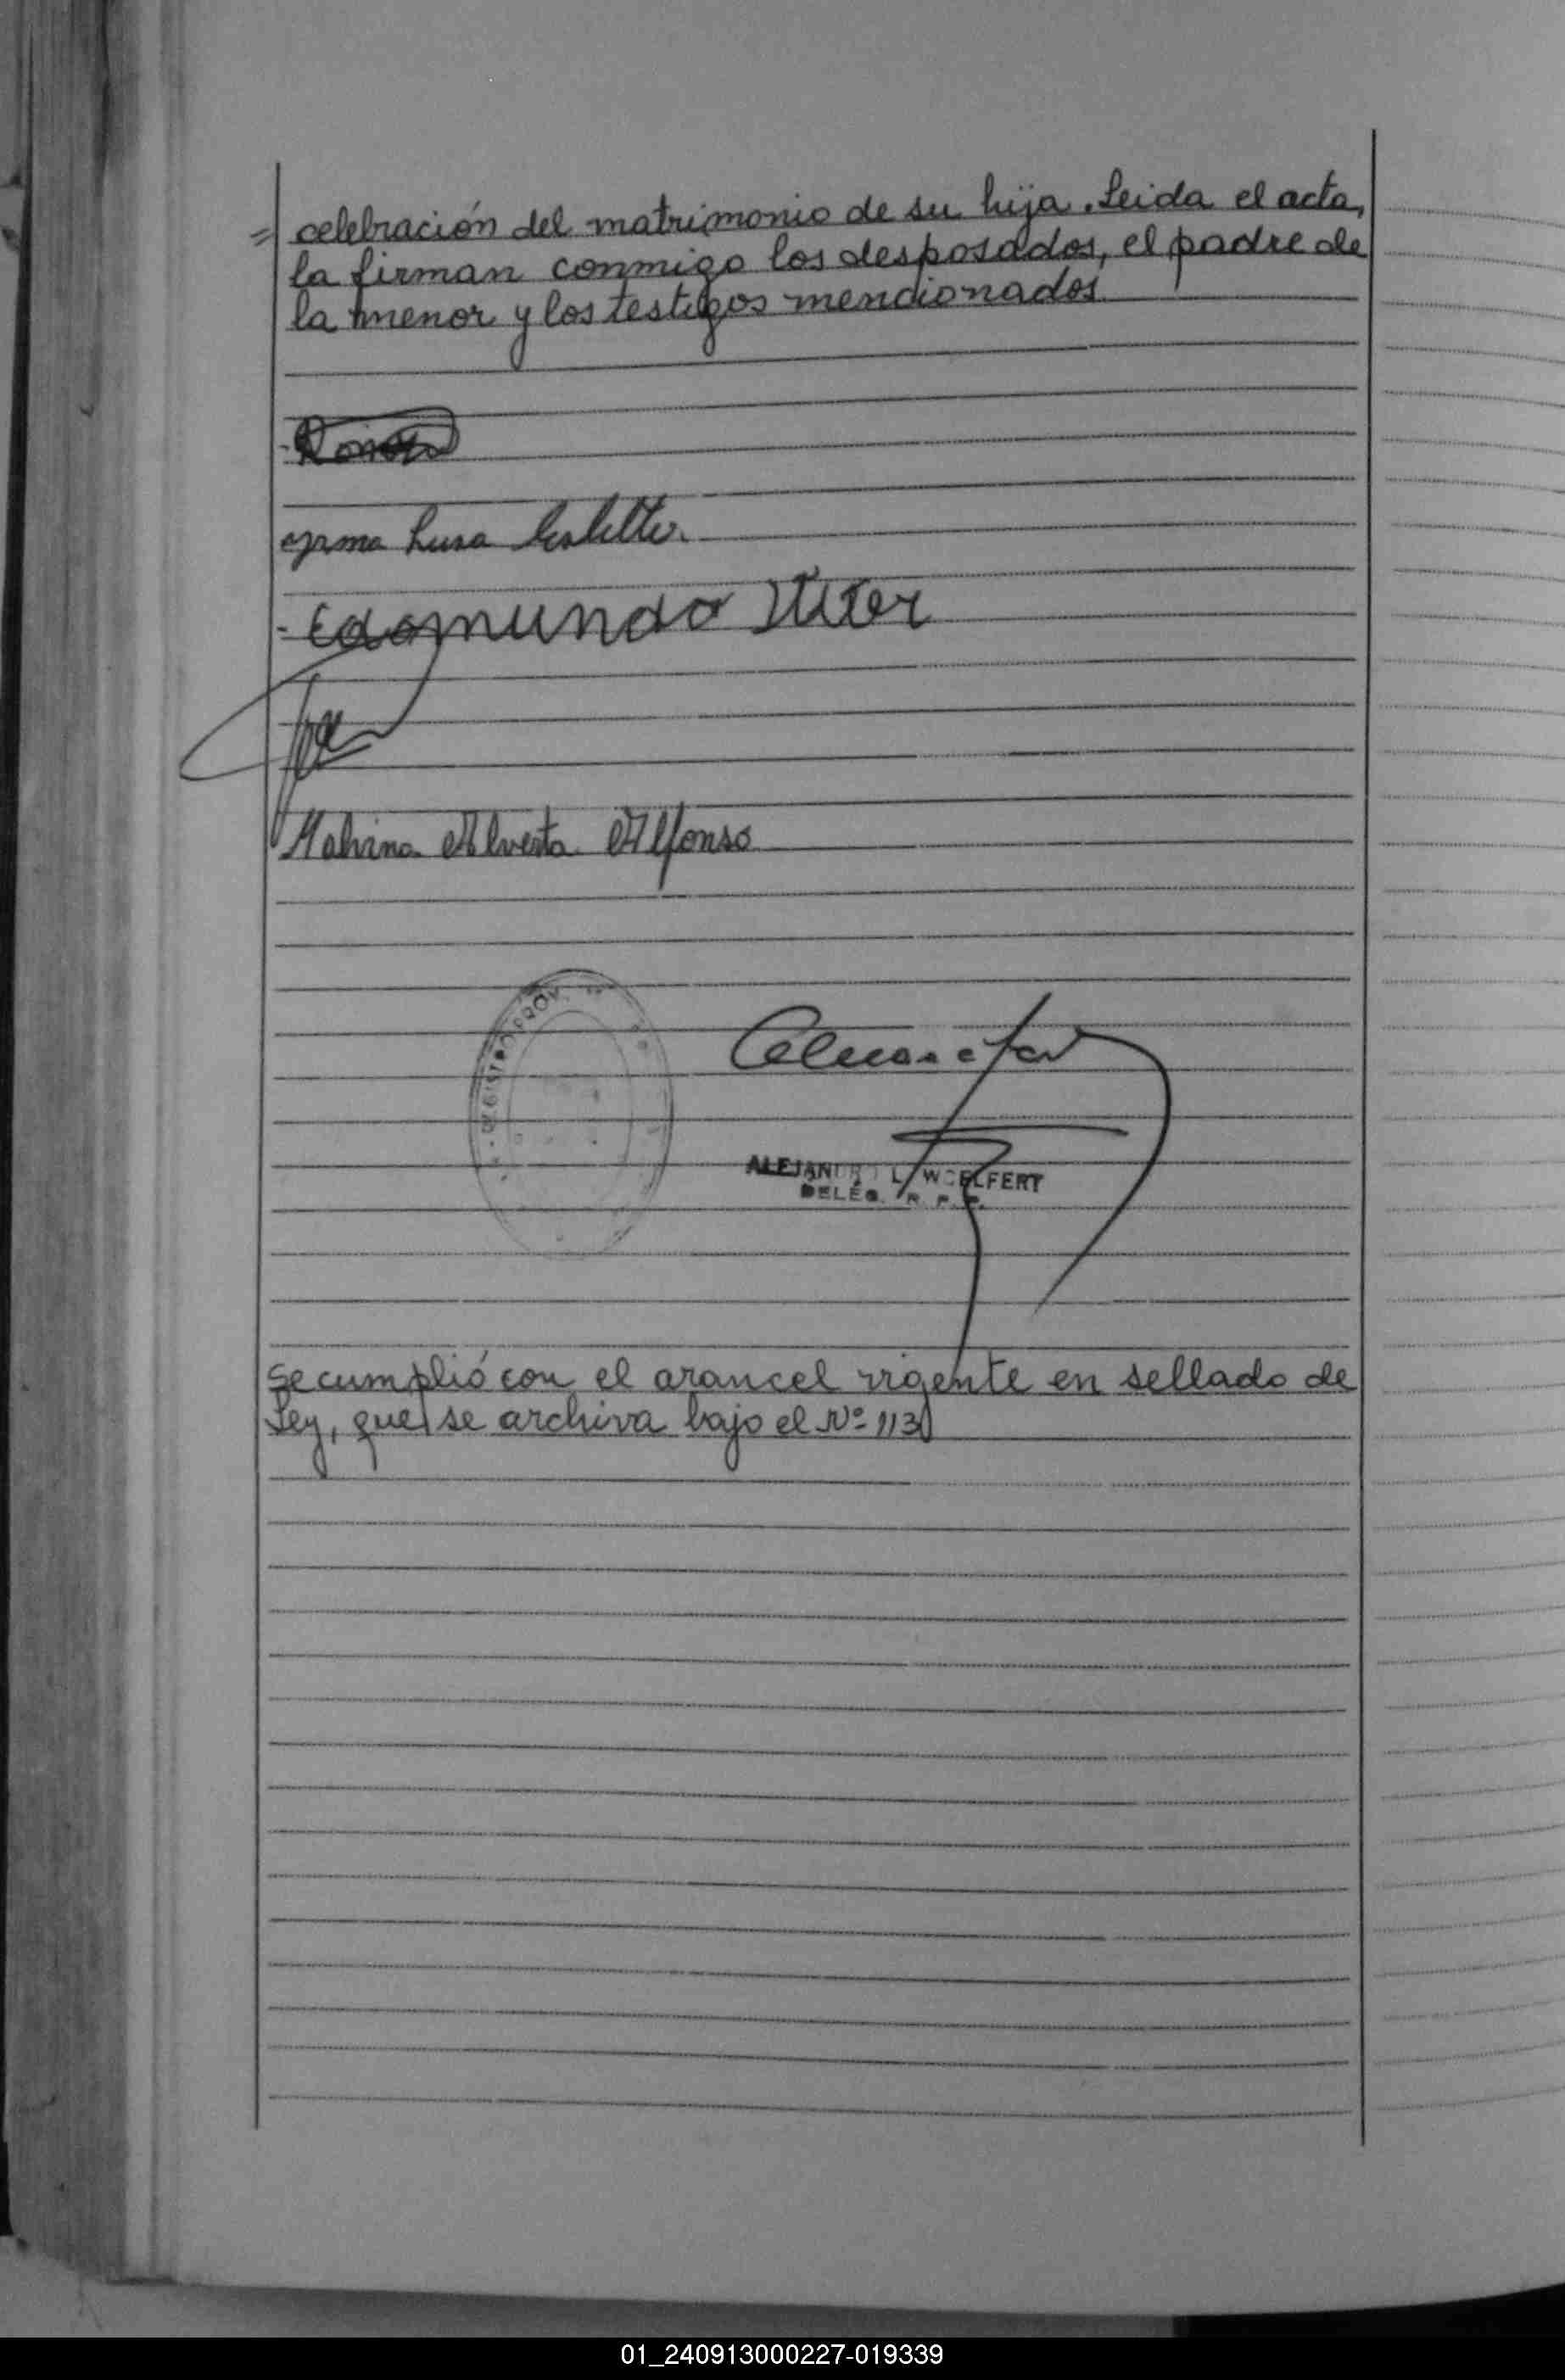 = celebración del matrimonio de su hija. Leida el acta,
la firman conmigo los desposados, el padre de
la menor y los testigos mencionados
Luisa
- Edomundo
Alverta Alfonso
REGISTRO PROV.
ALEJANDRO L. WOELFERT
DELEG. R. P. P.
Se cumplió con el arancel vigente en sellado de
Ley, que se archiva bajo el Nº 113
01_240913000227-019339